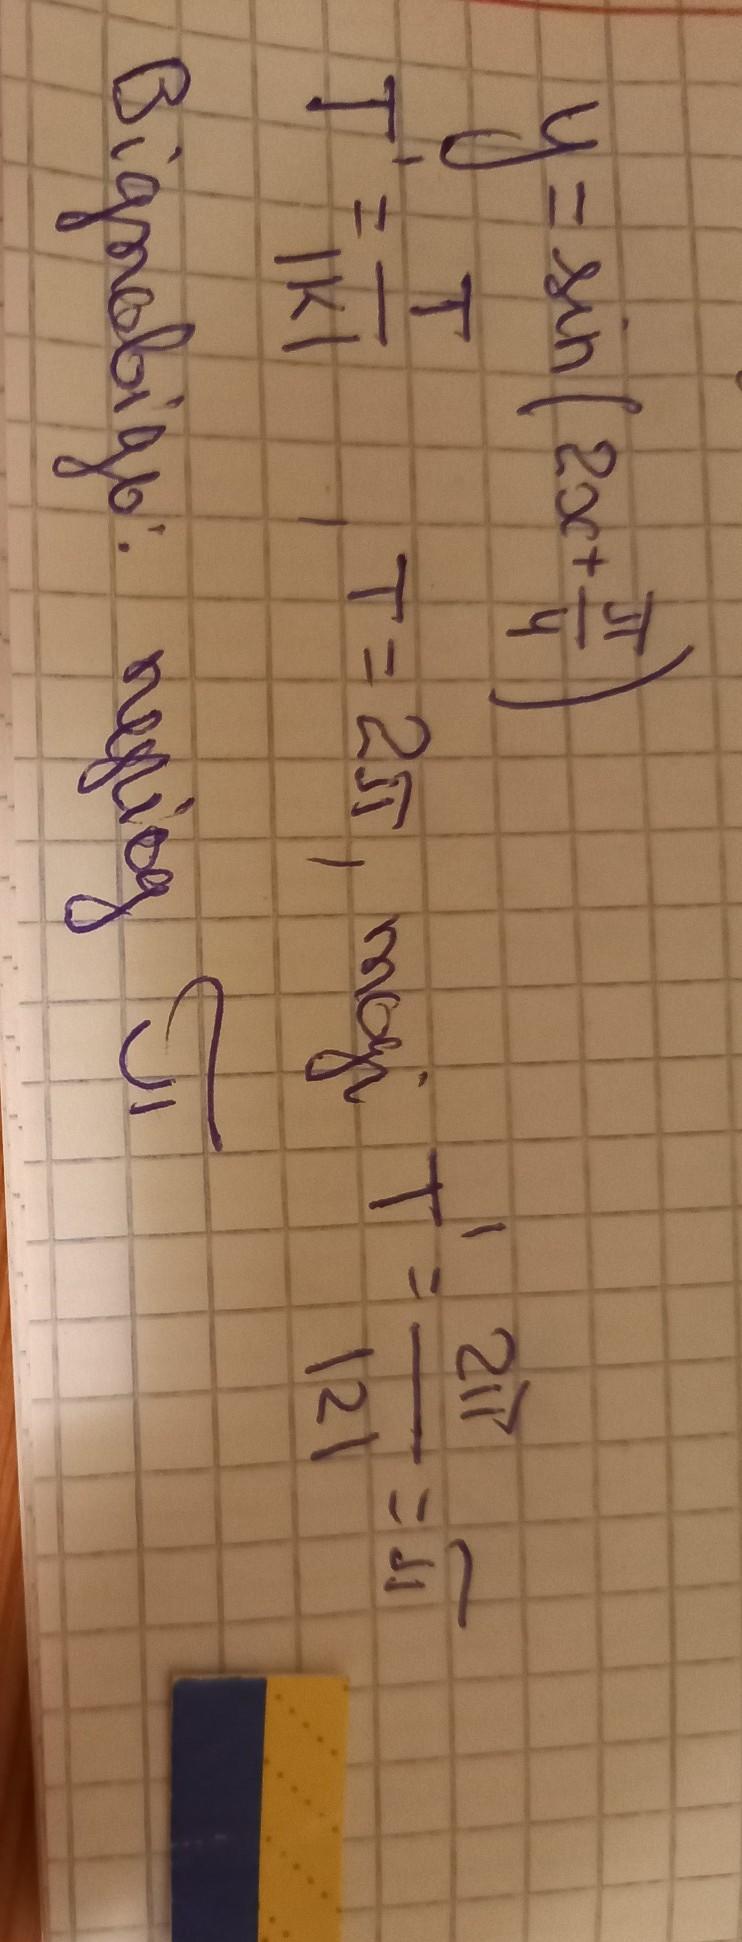 y = sin(2x + π/4)
T' = T/|k| , T = 2π, тоді T' = 2π/|2| = π
Відповідь: період π